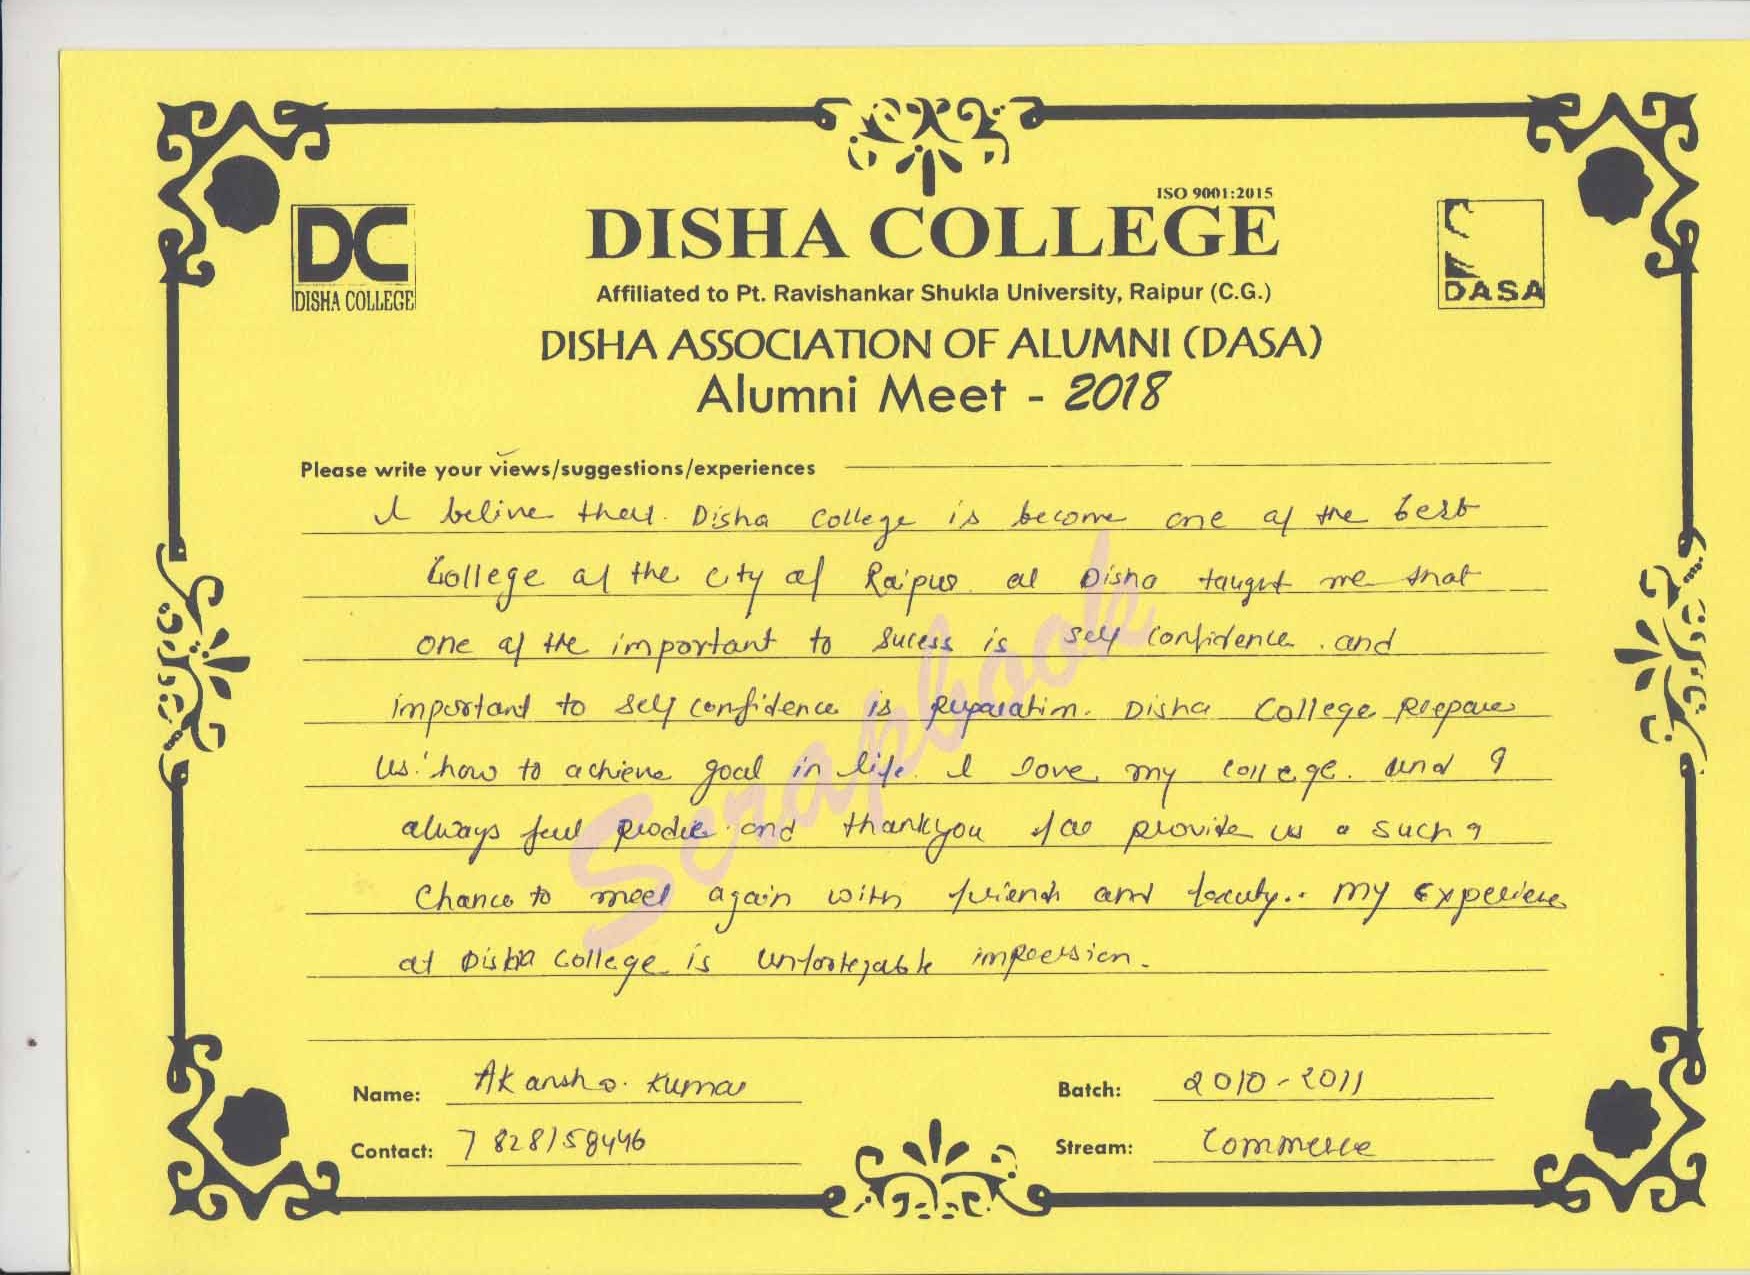 ISO 9001:2015
DC
DISHA COLLEGE
DISHA COLLEGE
DASA
Affiliated to Pt. Ravishankar Shukla University, Raipur (C.G.)
DISHA ASSOCIATION OF ALUMNI (DASA)
Alumni Meet - 2018
Please write your views/suggestions/experiences
I belive that. Disha College is become one of the best
College of the city of Raipur. at Disha taught me that
one of the important to sucess is self confidence. and
important to self confidence is preparation. Disha College prepare
us. how to achieve goal in life. I love my college. and I
always feel and thankyou for provide us a such a
Chance to meet again with friends and faculty.. my experience
at Disha College is impression.
Scrapbook
Name: Akansha Kumar
Batch: 2010-2011
Contact: 7828158446
Stream: Commerce